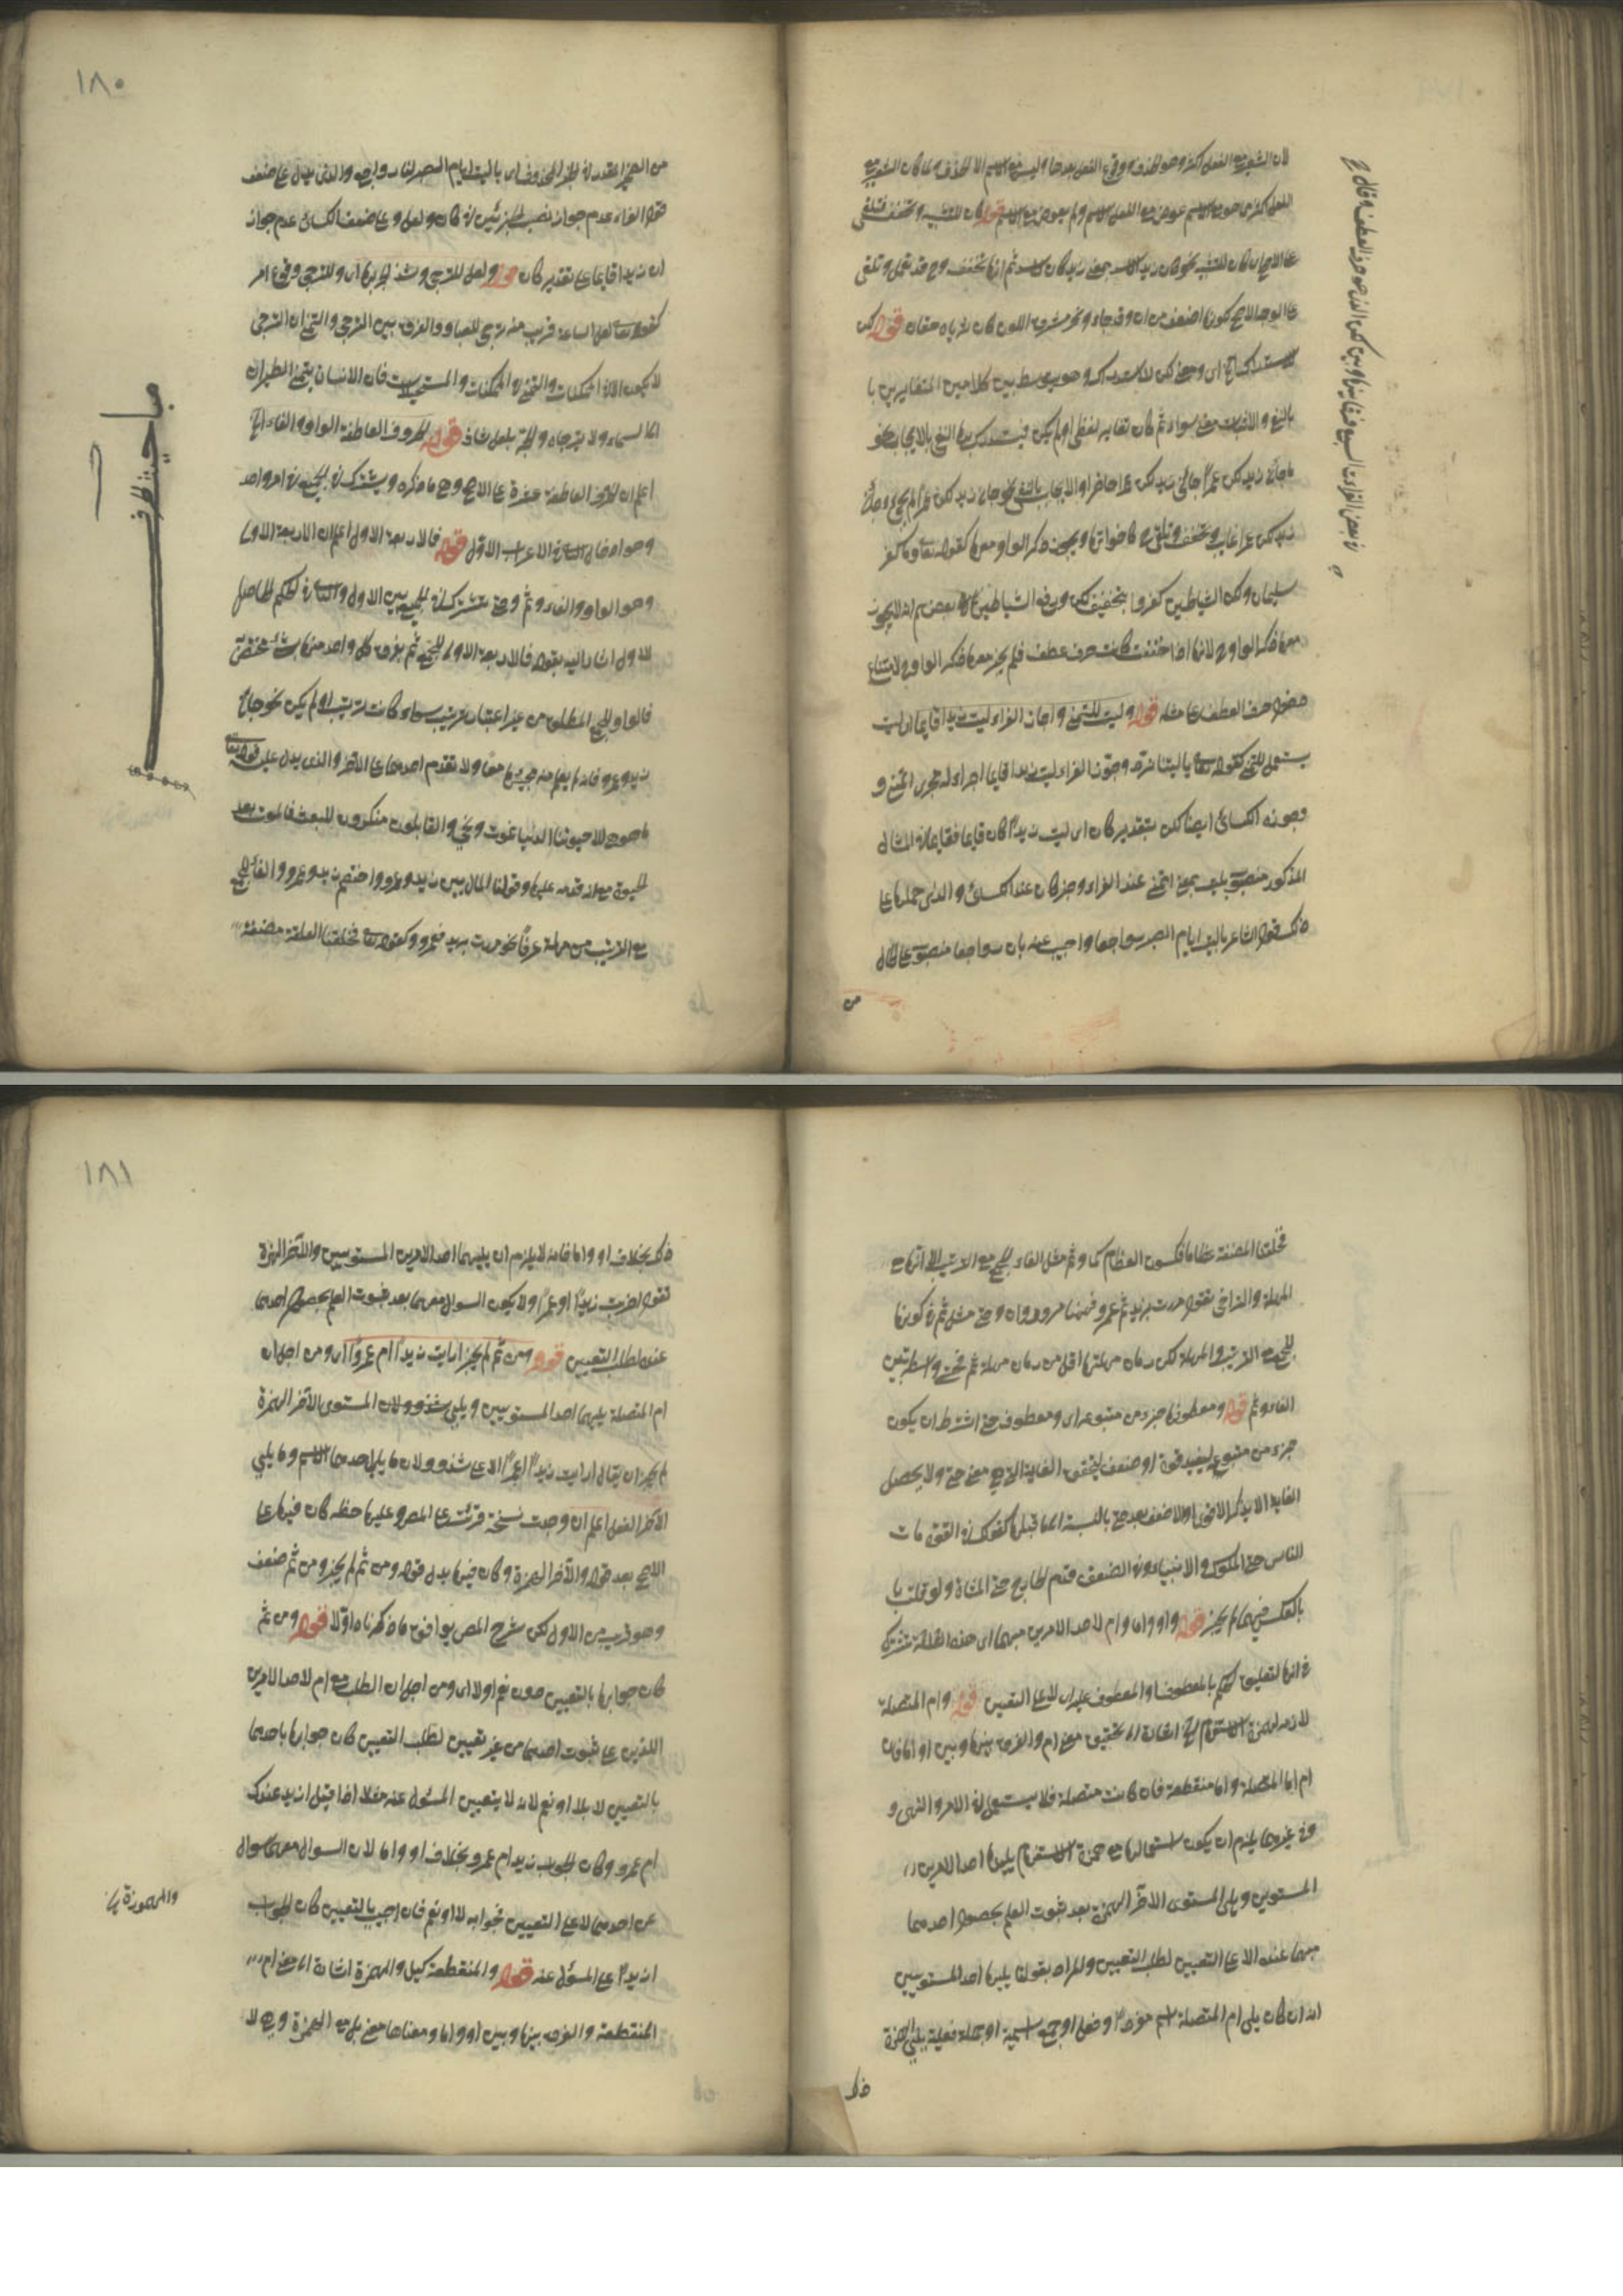 لان التغيير مع الفعل اكثر وهو الحذف ووقوع الفعل بعدها وليس مع الاسم الا الحذف ولما كان التغيير مع
الفعل اكثر من الاسم عوض مع الفعل ولم يعوض مع الاسم قوله كان للتشبيه وتخفف فتلغى
على الاصح ان كان للتشبيه نحو كان زيدا الاسد ثم انها تخفف وح قد تعمل وتلغى
على الوجه الاصح لكونها اضعف من ان وقد جاء ونحر مشرق اللون كان ثدياه حقان قوله لكن
للاستدراك الخ اى ومعنى لكن للاستدراك وهو يتوسط بين كلامين المتغايرين با
بالنفى والاثبات معنى سواء كان تغاير لفظى او لم يكن فيستدرك بها النفى بالايجاب نحو
ما جاءنى زيد لكن عمرا جاءنى زيد لكن عمرا حاضر او الايجاب بالنفى نحو جاءنى زيد لكن عمرا لم يجئ وجاءنى
زيد لكن عمرا غايب وتخفف وتلغى كاخواتها ويجوز ذكر الواو معها كقوله تعالى وما كفر
سليمان ولكن الشياطين كفروا بتخفيف لكن ورفع الشياطين بعضهم انه لا يجوز
معها ذكر الواو ح لانها اذا خففت كانت حرف عطف فلم يجز معها ذكر الواو ح لامتناع
دخول حرف العطف على مثله قوله وليت للتمنى واجاز الفراء ليت زيدا قايما اى ليت
يستعمل للتمنى كقوله تعالى يا ليتنا نرد وجوز الفراء ليت زيدا قايما اجراء له مجرى اتمنى و
وجوزه الكسائى ايضا لكن بتقدير كان اى ليت زيدا كان قايما فقايما فى المثال
المذكور منصوب بليت بمعنى اتمنى عند الفراء وخبر كان عند الكسائى والذى حملها على
ذلك قول الشاعر يا ليت ايام الصبى رواجعا واجيب عنه بان رواجعا منصوب على الحال
من
فى بعض القراءات السبع فرقا بينها وبين لكن الذى هو حرف العطف وقال ح
١٨٠
من الضمير المقدر فى الخبر المحذوف اى يا ليت ايام الصبى لنا رواجع والذى يدل على ضعف
قول الفراء عدم جواز نصب الجزئين فى كان ولعل وعلى ضعف الكسائى عدم جواز
ان زيدا قايما على تقدير كان قوله ولعل للترجى وشذ الجر بها اى وللترجى وقوع امر
كقوله تعالى لعل الساعة قريب منه ترجى للعباد والفرق بين الترجى والتمنى ان الترجى
لا يكون الا فى الممكنات والتمنى فى الممكنات والمستحيلات فان الانسان يتمنى الطيران
الى السماء ولا يترجاه والجر بلعل شاذ قوله الحروف العاطفة الواو والفاء الخ
اعلم ان الحروف العاطفة عشرة على الاصح وهى ما ذكره ويشترك فى الجميع فى امر واحد
وهو ادخال الثانى فى الاعراب الاول قوله فالاربعة الاول اعلم ان الاربعة الاول
وهو الواو والفاء وثم وحتى تشترك فى الجمع بين الاول والثانى فى الحكم الحاصل
للاول اشار اليه بقوله فالاربعة الاول للجمع ثم يفرق كل واحد منها بشئ مختص
فالواو للجمع المطلق من غير اعتبار ترتيب سواء كانت ترتيب او لم يكن نحو جاءنى
زيد وعمرو فانه لم يعلم منه مجيئهما معا ولا تقدم احدهما على الاخر والذى يدل عليه قوله تعالى
ما هى الا حيوتنا الدنيا نموت ونحيى والقايلون منكرون للبعث فالموت بعد
الحيوة مع انه قدمه عليها وقولنا المال بين زيد وعمرو واختصم زيد وعمرو والفاء للجمع
مع الترتيب من مهلة عرفا نحو مررت بزيد فعمرو وكقوله تعالى فخلقنا العلقة مضغة
مباحث ظروف
فخلقنا المضغة عظاما فكسونا العظام لحما وثم مثل الفاء للجمع مع الترتيب الا انها مع
المهلة والتراخى تقول مررت بزيد ثم عمرو فههنا مروران وحتى مثل ثم فى كونها
للجمع مع الترتيب والمهلة لكن زمان مهلتها اقل من زمان مهلة ثم فحتى واسطة بين
الفاء وثم قوله ومعطوفها جزء من متبوعه اى ومعطوف حتى اشترط ان يكون
جزء من متبوع ليفيد قوة او ضعف ليتحقق الغاية التى هى معنى حتى ولا يحصل
الغاية الا بذكر الاقوى او الاضعف بعد حتى بالنسبة الى ما قبلها كقولك فى القوى مات
الناس حتى الملوك والانبياء وفى الضعف قدم الحاج حتى المشاة ولو قلت با
بالعكس فيهما لم يجز قوله واو واما وام لاحد الامرين مبهما اى هذه الثلثة تشترك
فى انها لتعليق الحكم بالمعطوف او المعطوف عليه اى لا على التعيين قوله وام المتصلة
لازمة لهمزة الاستفهام الخ اشارة الى تحقيق معنى ام والفرق بينها وبين او اما فان
ام اما المتصلة واما منقطعة فان كانت متصلة فلا يستعمل فى الامر والنهى و
وفى غيرهما يلزم ان يكون استعمالها مع همزة الاستفهام يليها احد الامرين
المستويين ويلى المستوى الاخر الهمزة بعد ثبوت العلم بحصول احدهما
مبهما عنده لا على التعيين لطلب التعيين والمراد بقولنا يليها احد المستويين
انه ان كان يلى ام المتصلة اسم مفرد او فعل او جملة اسمية او جملة فعلية يلى الهمزة
ذلك
١٨١
ذلك بخلاف او واما فانه لا يلزم ان يليهما احد الامرين المستويين والآخر الهمزة
تقول اضربت زيدا او عمرا ولا يكون السوال معهما بعد ثبوت العلم بحصول احدهما
عنده لطلب التعيين قوله ومن ثم لم يجز ارايت زيدا ام عمروا اى ومن اجل ان
ام المتصلة يليها احد المستويين ويلى المستوى الآخر الهمزة
لم يجز ان يقال ارايت زيدا ام عمرا الا على شذوذ لان ما يلى احدهما الاسم وما يلى
الآخر الفعل اعلم ان وجدت نسخة قرئت على المص وعليها خطه كان فيها على
الاصح بعد قوله والآخر الهمزة وكان فيها بدل قوله ومن ثم لم يجز ومن ثم ضعف
وهو قريب من الاول لكن شرح المص يوافق ما ذكرناه اولا قوله ومن ثم
كان جوابها بالتعيين دون نعم او لا اى ومن اجل ان الطلب مع ام لاحد الامرين
اللذين على ثبوت احدهما من غير تعيين لطلب التعيين كان جوابها باحدهما
بالتعيين لا بلا او نعم لانه لا يتعيين المسئول عنه مثلا اذا قيل ازيد عندك
ام عمرو وكان الجواب زيد ام عمرو بخلاف او واما لان السوال معهما سوال
عن احدهما لا على التعيين فجوابه لا او نعم فان اجيب بالتعيين كان الجواب
ازيد على المسؤل عنه قوله والمنقطعة كبل والهمزة اشارة الى معنى ام
المنقطعة والفرق بينها وبين او واما ومعناها معنى بل مع الهمزة وهى لا